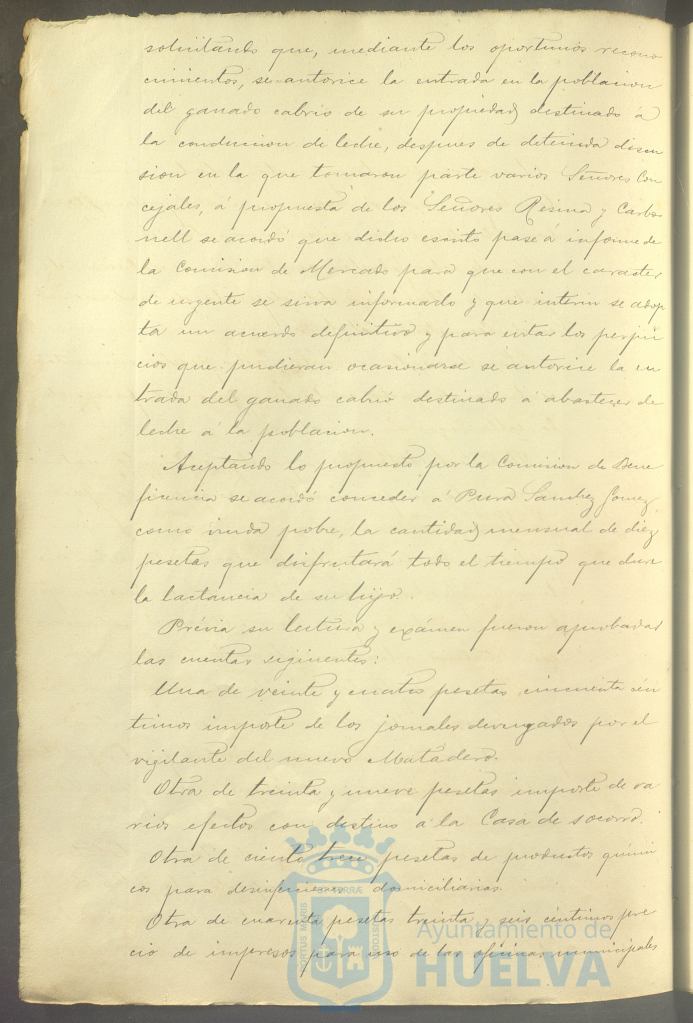 solicitando que, mediante los oportunos recono
cimientos, se autorice la entrada en la poblacion
del ganado cabrio de su propiedad destinado á
la conduccion de leche, despues de detenida discu
sion en la que tomaron parte varios Señores Con
cejales, á propuesta de los Señores Resina y Carbo
nell se acordó que dicho escrito pase á informe de
la Comision de Mercado para que con el caracter
de urgente se sirva informarlo y que interin se adop
ta un acuerdo definitivo y para evitar los perjui
cios que pudieran ocasionarse se autorice la en
trada del ganado cabrio destinado á abastecer de
leche á la poblacion.
Aceptando lo propuesto por la Comision de Bene
ficencia se acordó conceder á Pura Sanchez Gomez,
como viuda pobre, la cantidad mensual de diez
pesetas que disfrutará todo el tiempo que dure
la lactancia de su hijo.
Prévia su lectura y exámen fueron aprobadas
las cuentas siguientes:
Una de veinte y cuatro pesetas cincuenta cén
timos importe de los jornales devengados por el
vigilante del nuevo Matadero.
Otra de treinta y nueve pesetas importe de va
rios efectos con destino á la Casa de socorro.
Otra de ciento trece pesetas de productos quimi
cos para desinfecciones domiciliarias.
Otra de cuarenta pesetas treinta y seis céntimos pre
cio de impresos para uso de las oficinas municipales
PORTUS MARIS ET TERRAE CUSTODIA
Ayuntamiento de
HUELVA